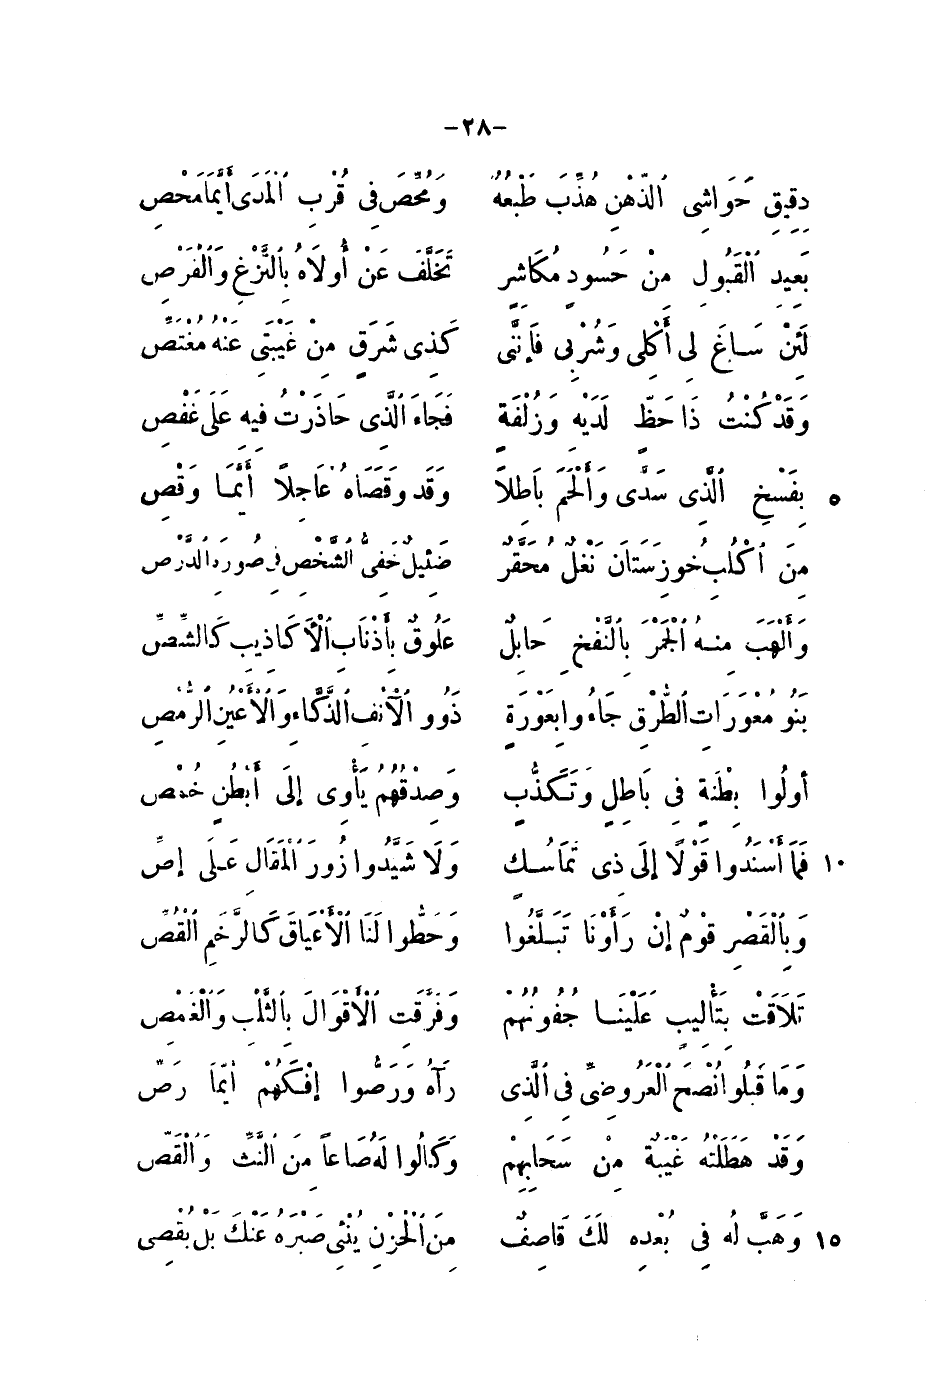 -٢٨-
دقِيقِ حَوَاشِى ٱلذِّهْنِ هُذِّبَ طَبْعُهُ وَمُحِّصَ فِى قُرْبِ ٱلْمَدَى أَيَّمَا مَحْصِ
بَعِيدِ ٱلْقَبُولِ مِنْ حَسُودٍ مُكَاشِرٍ تَخَلَّفَ عَنْ أُولَاهُ بِٱلنَّزْغِ وَٱلْفَرْصِ
لَئِنْ سَاغَ لِى أَكْلِى وَشُرْبِى فَإِنَّنِى كَذِى شَرَقٍ مِنْ غَيْبَتِى عَنْهُ مُغْتَصِّ
وَقَدْ كُنْتُ ذَا حَظٍّ لَدَيْهِ وَزُلْفَةٍ فَجَاءَ ٱلَّذِى حَاذَرْتُ فِيهِ عَلَى غَفْصِ
٥ بِفَسْخِ ٱلَّذِى سَدَّى وَأَلْحَمَ بَاطِلاً وَقَد وَقَصَاهُ عَاجِلاً أَيَّمَا وَقْصِ
مِنَ ٱكْلُبِ خُوزِسْتَانَ نَغْلٌ مُحَقَّرٌ ضَئِيلٌ خَفِىُّ ٱلشَّخْصِ فِى صُورَةِ ٱلدَّرْصِ
وَأَلْهَبَ مِنْهُ ٱلْجَمْرَ بِٱلنَّفْخِ حَابِلٌ عَلُوقٌ بِأَذْنَابِ ٱلْأَكَاذِيبِ كَٱلشِّصِّ
بَنُو مُعْوِرَاتِ ٱلطُّرْقِ جَاءُوا بِعَوْرَةٍ ذَوُو ٱلْآنُفِ ٱلذَّكَّاءِ وَٱلْأَعْيُنِ ٱلرُّمْصِ
أُولُوا بِطْنَةٍ فِى بَاطِلٍ وَتَكَذُّبٍ وَصِدْقُهُمُ يَأْوِى إِلَى أَبْطُنٍ خُمْصِ
١٠ فَمَا أَسْنَدُوا قَوْلًا إِلَى ذِى تَمَاسُكٍ وَلَا شَيَّدُوا زُورَ ٱلْمَقَالِ عَلَى إِصِّ
وَبِٱلْقَصْرِ قَوْمٌ إِنْ رَأَوْنَا تَبَلَّغُوا وَحَطُّوا لَنَا ٱلْأَعْيَاقَ كَٱلرَّخَمِ ٱلْقُصِّ
تَلَاقَتْ بِتَأْلِيبٍ عَلَيْنَا جُفُونُهُمْ وَفَرَّقَتِ ٱلْأَقْوَالَ بِٱلثَّلْبِ وَٱلْغَمْصِ
وَمَا قَبِلُوا نُصْحَ ٱلْعَرُوضِىِّ فِى ٱلَّذِى رَآهُ وَرَصُّوا إِفْكَهُمْ أَيَّمَا رَصِّ
وَقَدْ هَطَلَتْهُ غَيْبَةٌ مِنْ سَحَابِهِمْ وَكَالُوا لَهُ صَاعاً مِنَ ٱلنَّثِّ وَٱلْقَصِّ
١٥ وَهَبَّ لَهُ فِى بُعْدِهِ لَكَ قَاصِفٌ مِنَ ٱلْحُزْنِ يُنْئِى صَبْرَهُ عَنْكَ بَلْ يُقْصِى